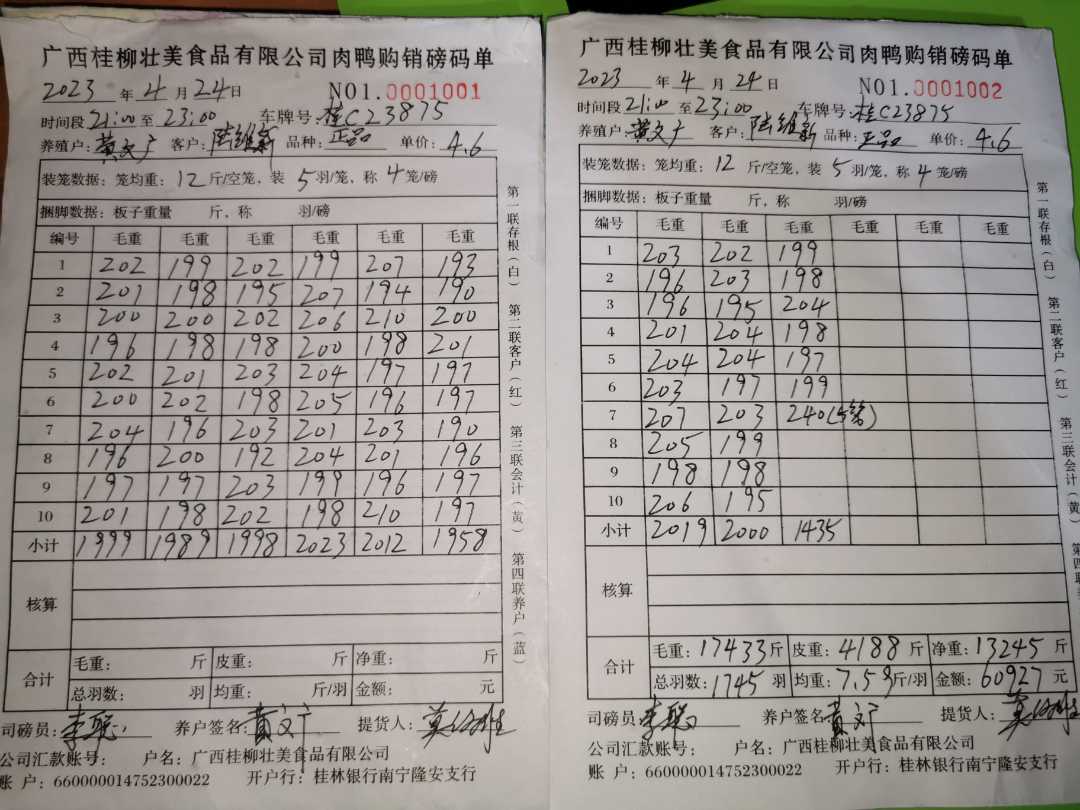 广西桂柳壮美食品有限公司肉鸭购销磅码单
2023 年 4 月 24 日 NO1.0001001
时间段 21:00 至 23:00 车牌号: 桂C23875
养殖户: 黄文广 客户: 陆维新 品种: 正品 单价: 4.6
装笼数据: 笼均重: 12 斤/空笼, 装 5 羽/笼, 称 4 笼/磅
捆脚数据: 板子重量 斤, 称 羽/磅
编号 毛重 毛重 毛重 毛重 毛重 毛重
1 202 199 202 199 207 193
2 201 198 195 207 194 190
3 200 200 202 206 210 200
4 196 198 198 200 198 201
5 202 201 203 204 197 197
6 200 202 198 205 196 197
7 204 196 203 201 203 190
8 196 200 192 204 201 196
9 197 197 203 199 196 197
10 201 198 202 198 210 197
小计 1999 1989 1998 2023 2012 1958
核算
合计 毛重: 斤 皮重: 斤 净重: 斤
总羽数: 羽 均重: 斤/羽 金额: 元
司磅员: 李聪 养户签名: 黄文广 提货人:
公司汇款账号: 户名: 广西桂柳壮美食品有限公司
账 户: 660000014752300022 开户行: 桂林银行南宁隆安支行
第一联存根(白) 第二联客户(红) 第三联会计(黄) 第四联养户(蓝)
广西桂柳壮美食品有限公司肉鸭购销磅码单
2023 年 4 月 24 日 NO1.0001002
时间段 21:00 至 23:00 车牌号: 桂C23875
养殖户: 黄文广 客户: 陆维新 品种: 正品 单价: 4.6
装笼数据: 笼均重: 12 斤/空笼, 装 5 羽/笼, 称 4 笼/磅
捆脚数据: 板子重量 斤, 称 羽/磅
编号 毛重 毛重 毛重 毛重 毛重 毛重
1 203 202 199
2 196 203 198
3 196 195 204
4 201 204 198
5 204 204 197
6 203 197 199
7 207 203 240(5笼)
8 205 199
9 198 198
10 206 195
小计 2019 2000 1435
核算
合计 毛重: 17433 斤 皮重: 4188 斤 净重: 13245 斤
总羽数: 1745 羽 均重: 7.59 斤/羽 金额: 60927 元
司磅员: 李聪 养户签名: 黄文广 提货人:
公司汇款账号: 户名: 广西桂柳壮美食品有限公司
账 户: 660000014752300022 开户行: 桂林银行南宁隆安支行
第一联存根(白) 第二联客户(红) 第三联会计(黄) 第四联养